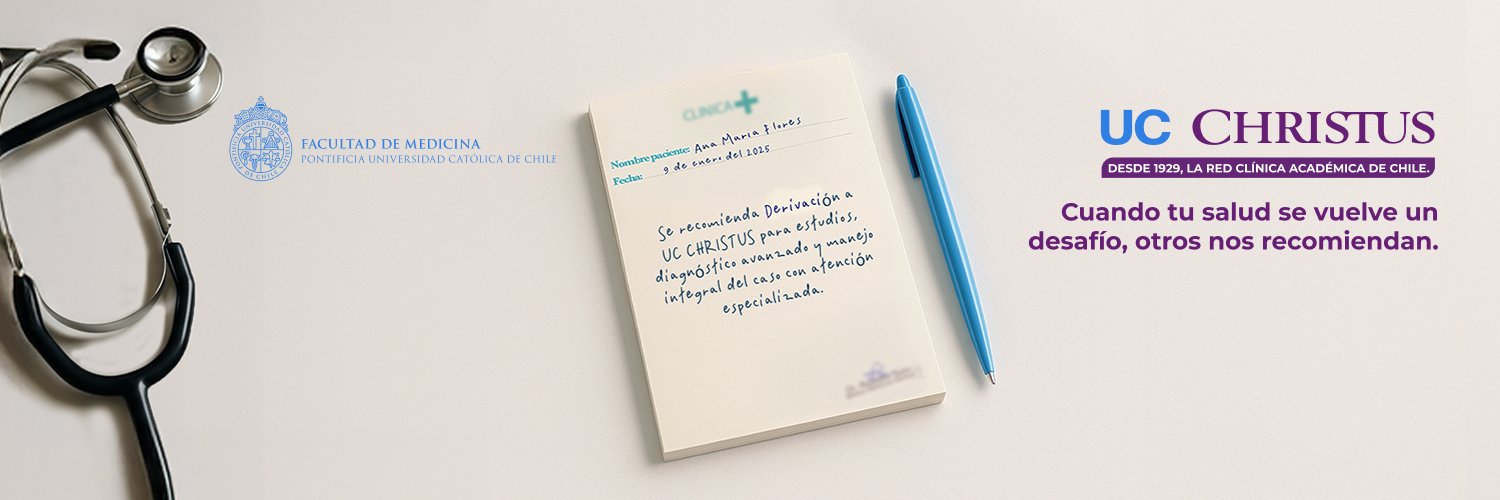 FACULTAD DE MEDICINA
PONTIFICIA UNIVERSIDAD CATÓLICA DE CHILE
CLINICA
Nombre paciente: Ana María Flores
Fecha: 9 de enero del 2025
Se recomienda Derivación a
UC CHRISTUS para estudios,
diagnóstico avanzado y manejo
integral del caso con atención
especializada.
UC CHRISTUS
DESDE 1929, LA RED CLÍNICA ACADÉMICA DE CHILE.
Cuando tu salud se vuelve un
desafío, otros nos recomiendan.